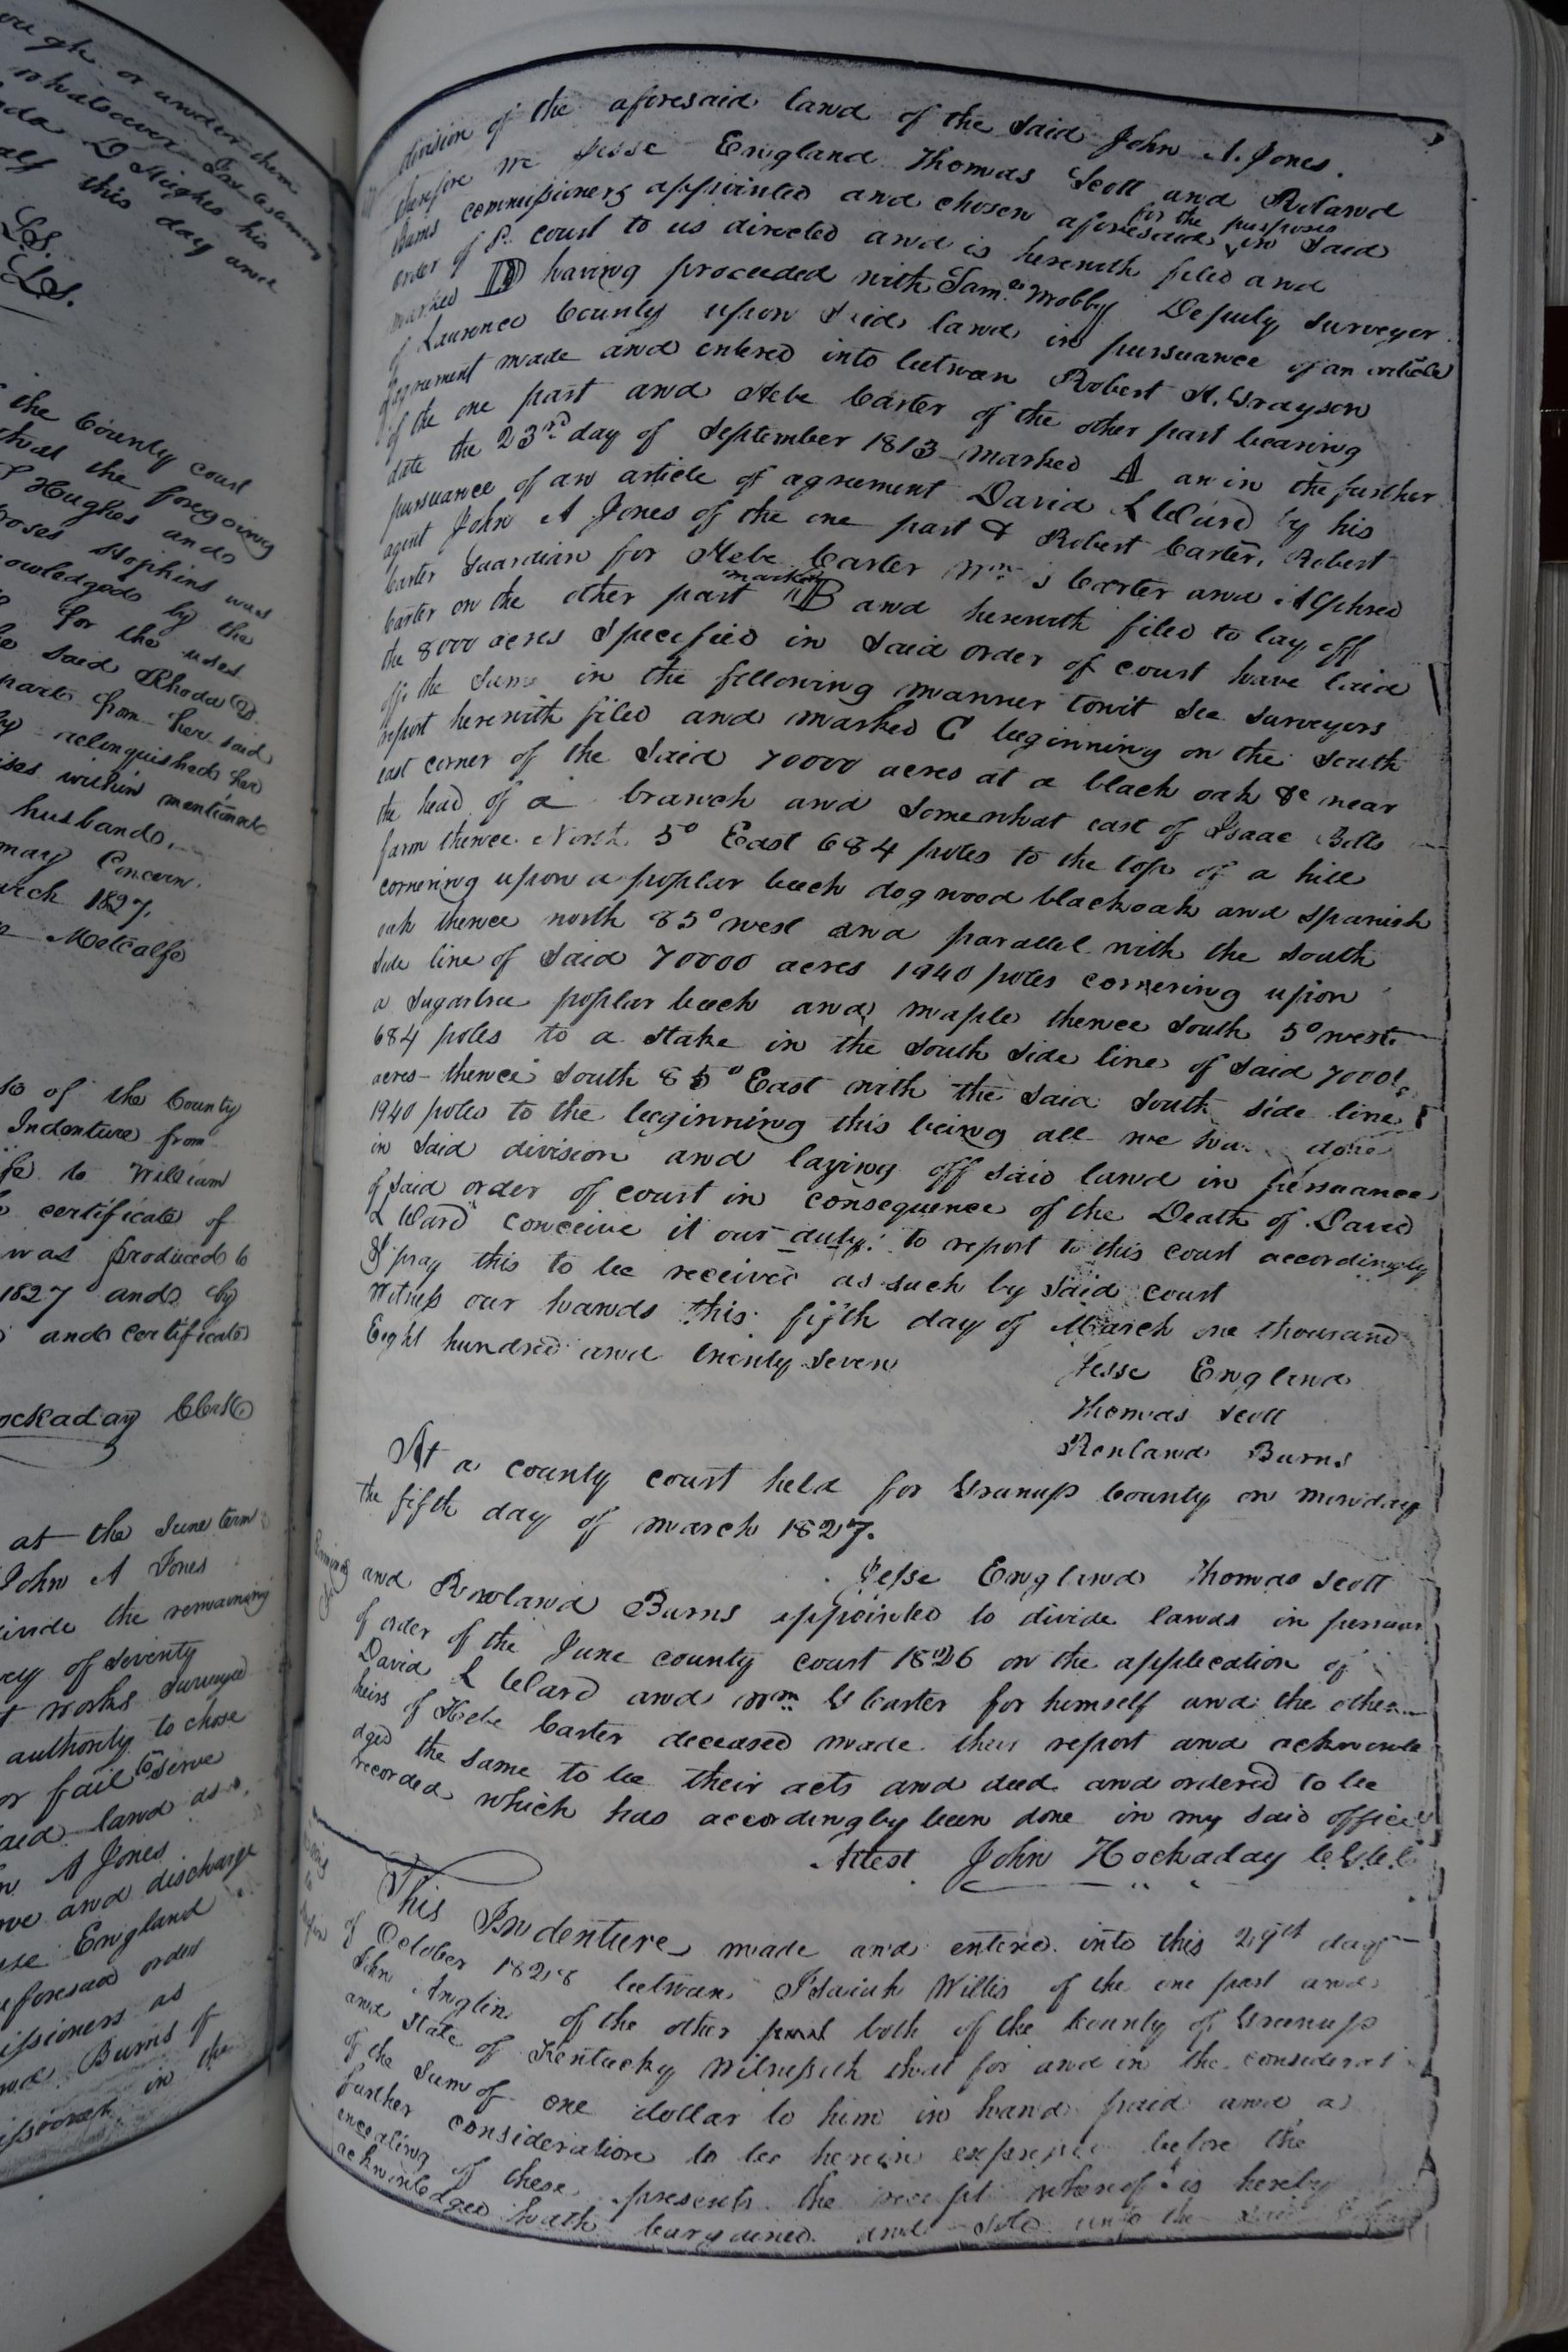 ough or under them
whatsoever In testimony
D Hughes his
this day and
L.S.
L.S.
the County court
that the foregoing
Hughes and
Hopkins was
by the
for the uses
said Rhoda D.
part from her said
relinquished her
within mentioned
husband.
may Concern.
1827,
Metcalfe
of the County
Indenture from
to William
certificate of
was produced to
1827 and by
and certificate
Clerk
at the June term
John A Jones
the remaining
of Seventy
works Surveyed
authority to chose
or fail to serve
land as
A Jones
and discharge
England
aforesaid order
as
Burns of
in the
division of the aforesaid land of the said John A. Jones.
therefore we Jesse England Thomas Scott and Roland
Burns commissioners appointed and chosen aforesaid for the purposes in said
order of sd. court to us directed and is herewith filed and
marked D having proceeded with Saml. Mobby Deputy Surveyor
of Laurence County upon Said land in pursuance of an article
of agreement made and entered into between Robert H. Grayson
of the one part and Hebe Carter of the other part bearing
date the 23rd day of September 1813 marked A an in the further
pursuance of an article of agreement David L Ward by his
agent John A Jones of the one part & Robert Carter, Robert
Carter Guardian for Hebe Carter Wm G Carter and Alphred
Carter on the other part marked B and herewith filed to lay off
the 8000 acres Specified in Said order of court have laid
off the Same in the following manner towit See Surveyors
report herewith filed and marked C beginning on the South
east corner of the Said 70000 acres at a black oak &c near
the head of a branch and Somewhat east of Isaac Botts
farm thence North 5° East 684 poles to the top of a hill
cornering upon a poplar beech dogwood blackoak and Spanish
oak thence north 85° west and parallel with the South
Side line of Said 70000 acres 1940 poles cornering upon
a Sugartree poplar beech and maple thence South 5° west
684 poles to a Stake in the South Side line of Said 70000
acres thence South 85° East with the Said South side line
1940 poles to the beginning this being all we have done
in Said division and laying off said land in persuance
of said order of court in consequence of the Death of David
L Ward conceive it our duty to report to this court accordingly
& pray this to be received as such by Said court
Witness our hands this fifth day of March one thousand
Eight hundred and twenty Seven
Jesse England
Thomas Scott
Renland Burns
At a county court held for Greenup County on monday
the fifth day of march 1827.
Jesse England Thomas Scott
and Rowland Burns appointed to divide lands in
of order of the June county court 1826 on the application of
David L Ward and Wm. G Carter for himself and the other
heirs of Hebe Carter deceased made their report and acknowle
dged the same to be their acts and deed and ordered to be
recorded which has accordingly been done in my said office
Attest John Hockaday C.G.C.C.
This Indenture made and entered into this 29th day
of October 1828 between Isaiah Willis of the one part and
John Anglin of the other part both of the County of Greenup
and State of Kentucky Witnesseth that for and in the considerat
of the Sum of one dollar to him in hand paid and a
further consideration to be herein before the
of these presents the receipt whereof is hereby
acknowledged hath bargained and Sold unto the said